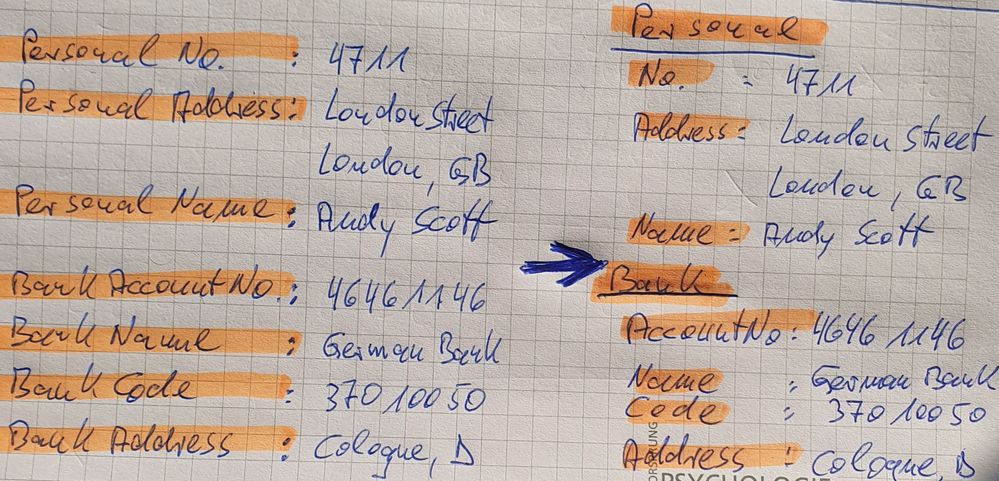 Personal No. : 4711
Personal Address: London Street
London, GB
Personal Name: Andy Scott
Bank Account No.: 46461146
Bank Name : German Bank
Bank Code : 37010050
Bank Address : Cologne, D
Personal
No. : 4711
Address: London Street
London, GB
Name: Andy Scott
Bank
Account No: 46461146
Name : German Bank
Code : 37010050
Address : Cologne, D
PSYCHOLOGIE